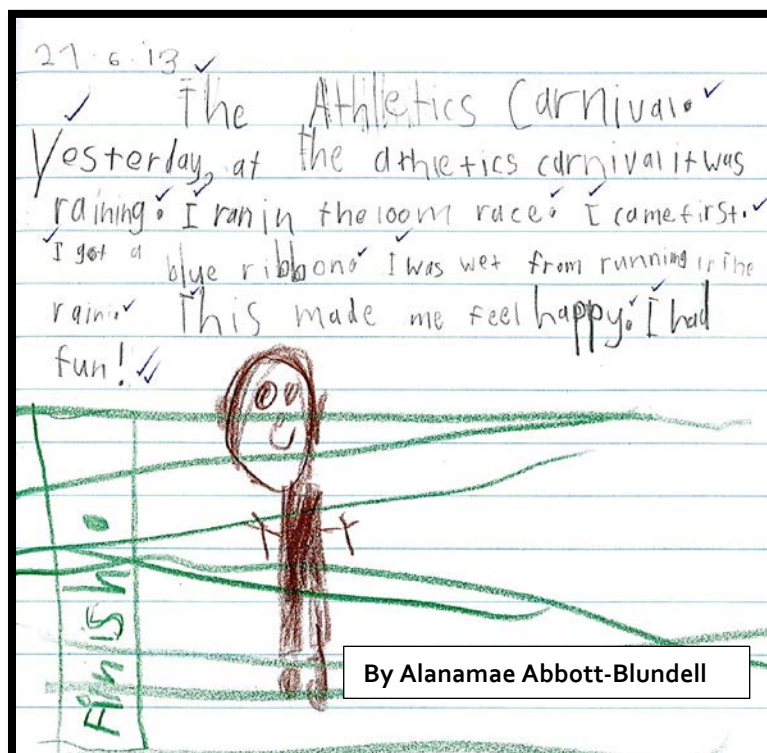 27.6.13
The Athletics Carnival.
Yesterday, at the athletics carnival it was
raining. I ran in the 100m race. I came first.
I got a blue ribbon. I was wet from running in the
rain. This made me feel happy. I had
fun!
Finish.
By Alanamae Abbott-Blundell